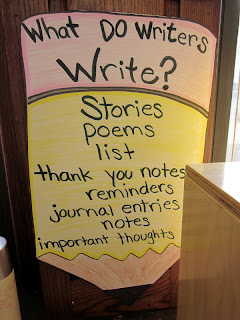 What DO Writers
Write?
Stories
poems
list
thank you notes
reminders
journal entries
notes
important thoughts